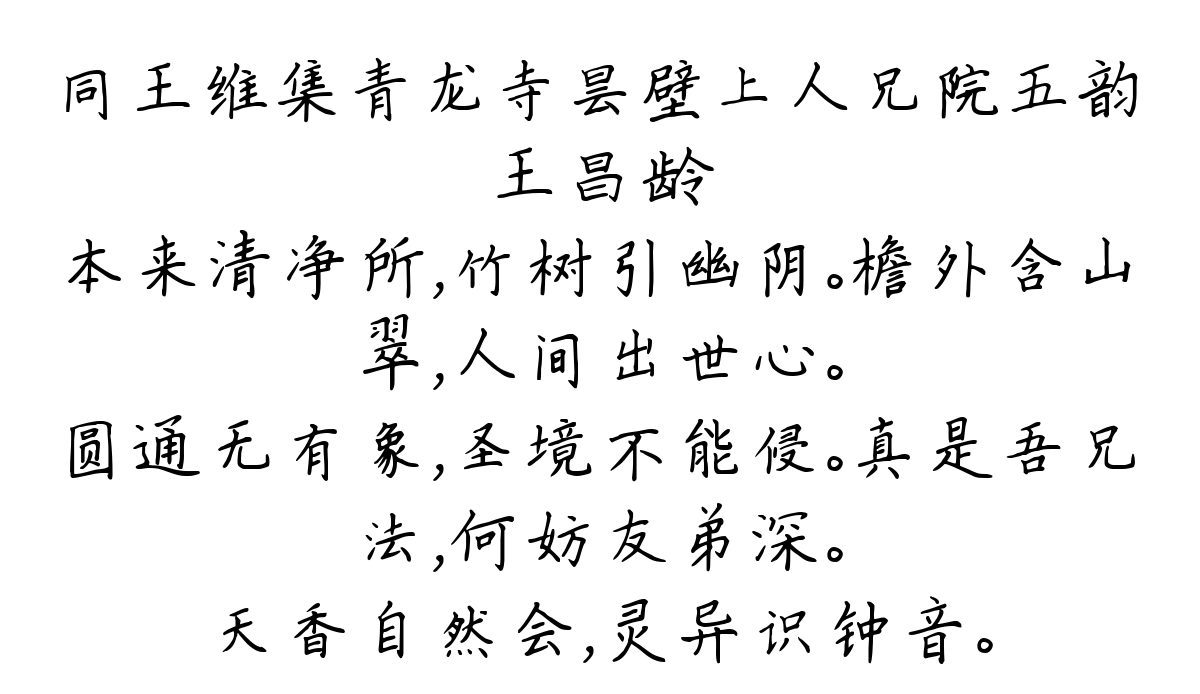 同王维集青龙寺昙壁上人兄院五韵
王昌龄
本来清净所,竹树引幽阴。檐外含山
翠,人间出世心。
圆通无有象,圣境不能侵。真是吾兄
法,何妨友弟深。
天香自然会,灵异识钟音。